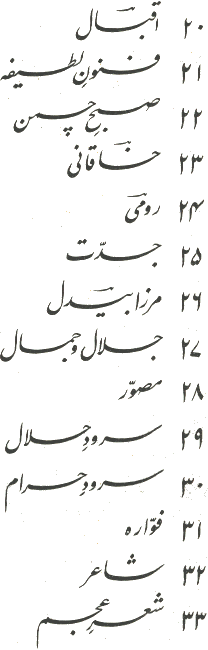 ۲۰ اقبالؔ
۲۱ فنونِ لطیفہ
۲۲ صبحِ چمن
۲۳ خاقانیؔ
۲۴ رومیؔ
۲۵ جدّت
۲۶ مرزا بیدلؔ
۲۷ جلال و جمال
۲۸ مصوّر
۲۹ سرودِ حلال
۳۰ سرودِ حرام
۳۱ فوّارہ
۳۲ شاعر
۳۳ شعرِ عجم